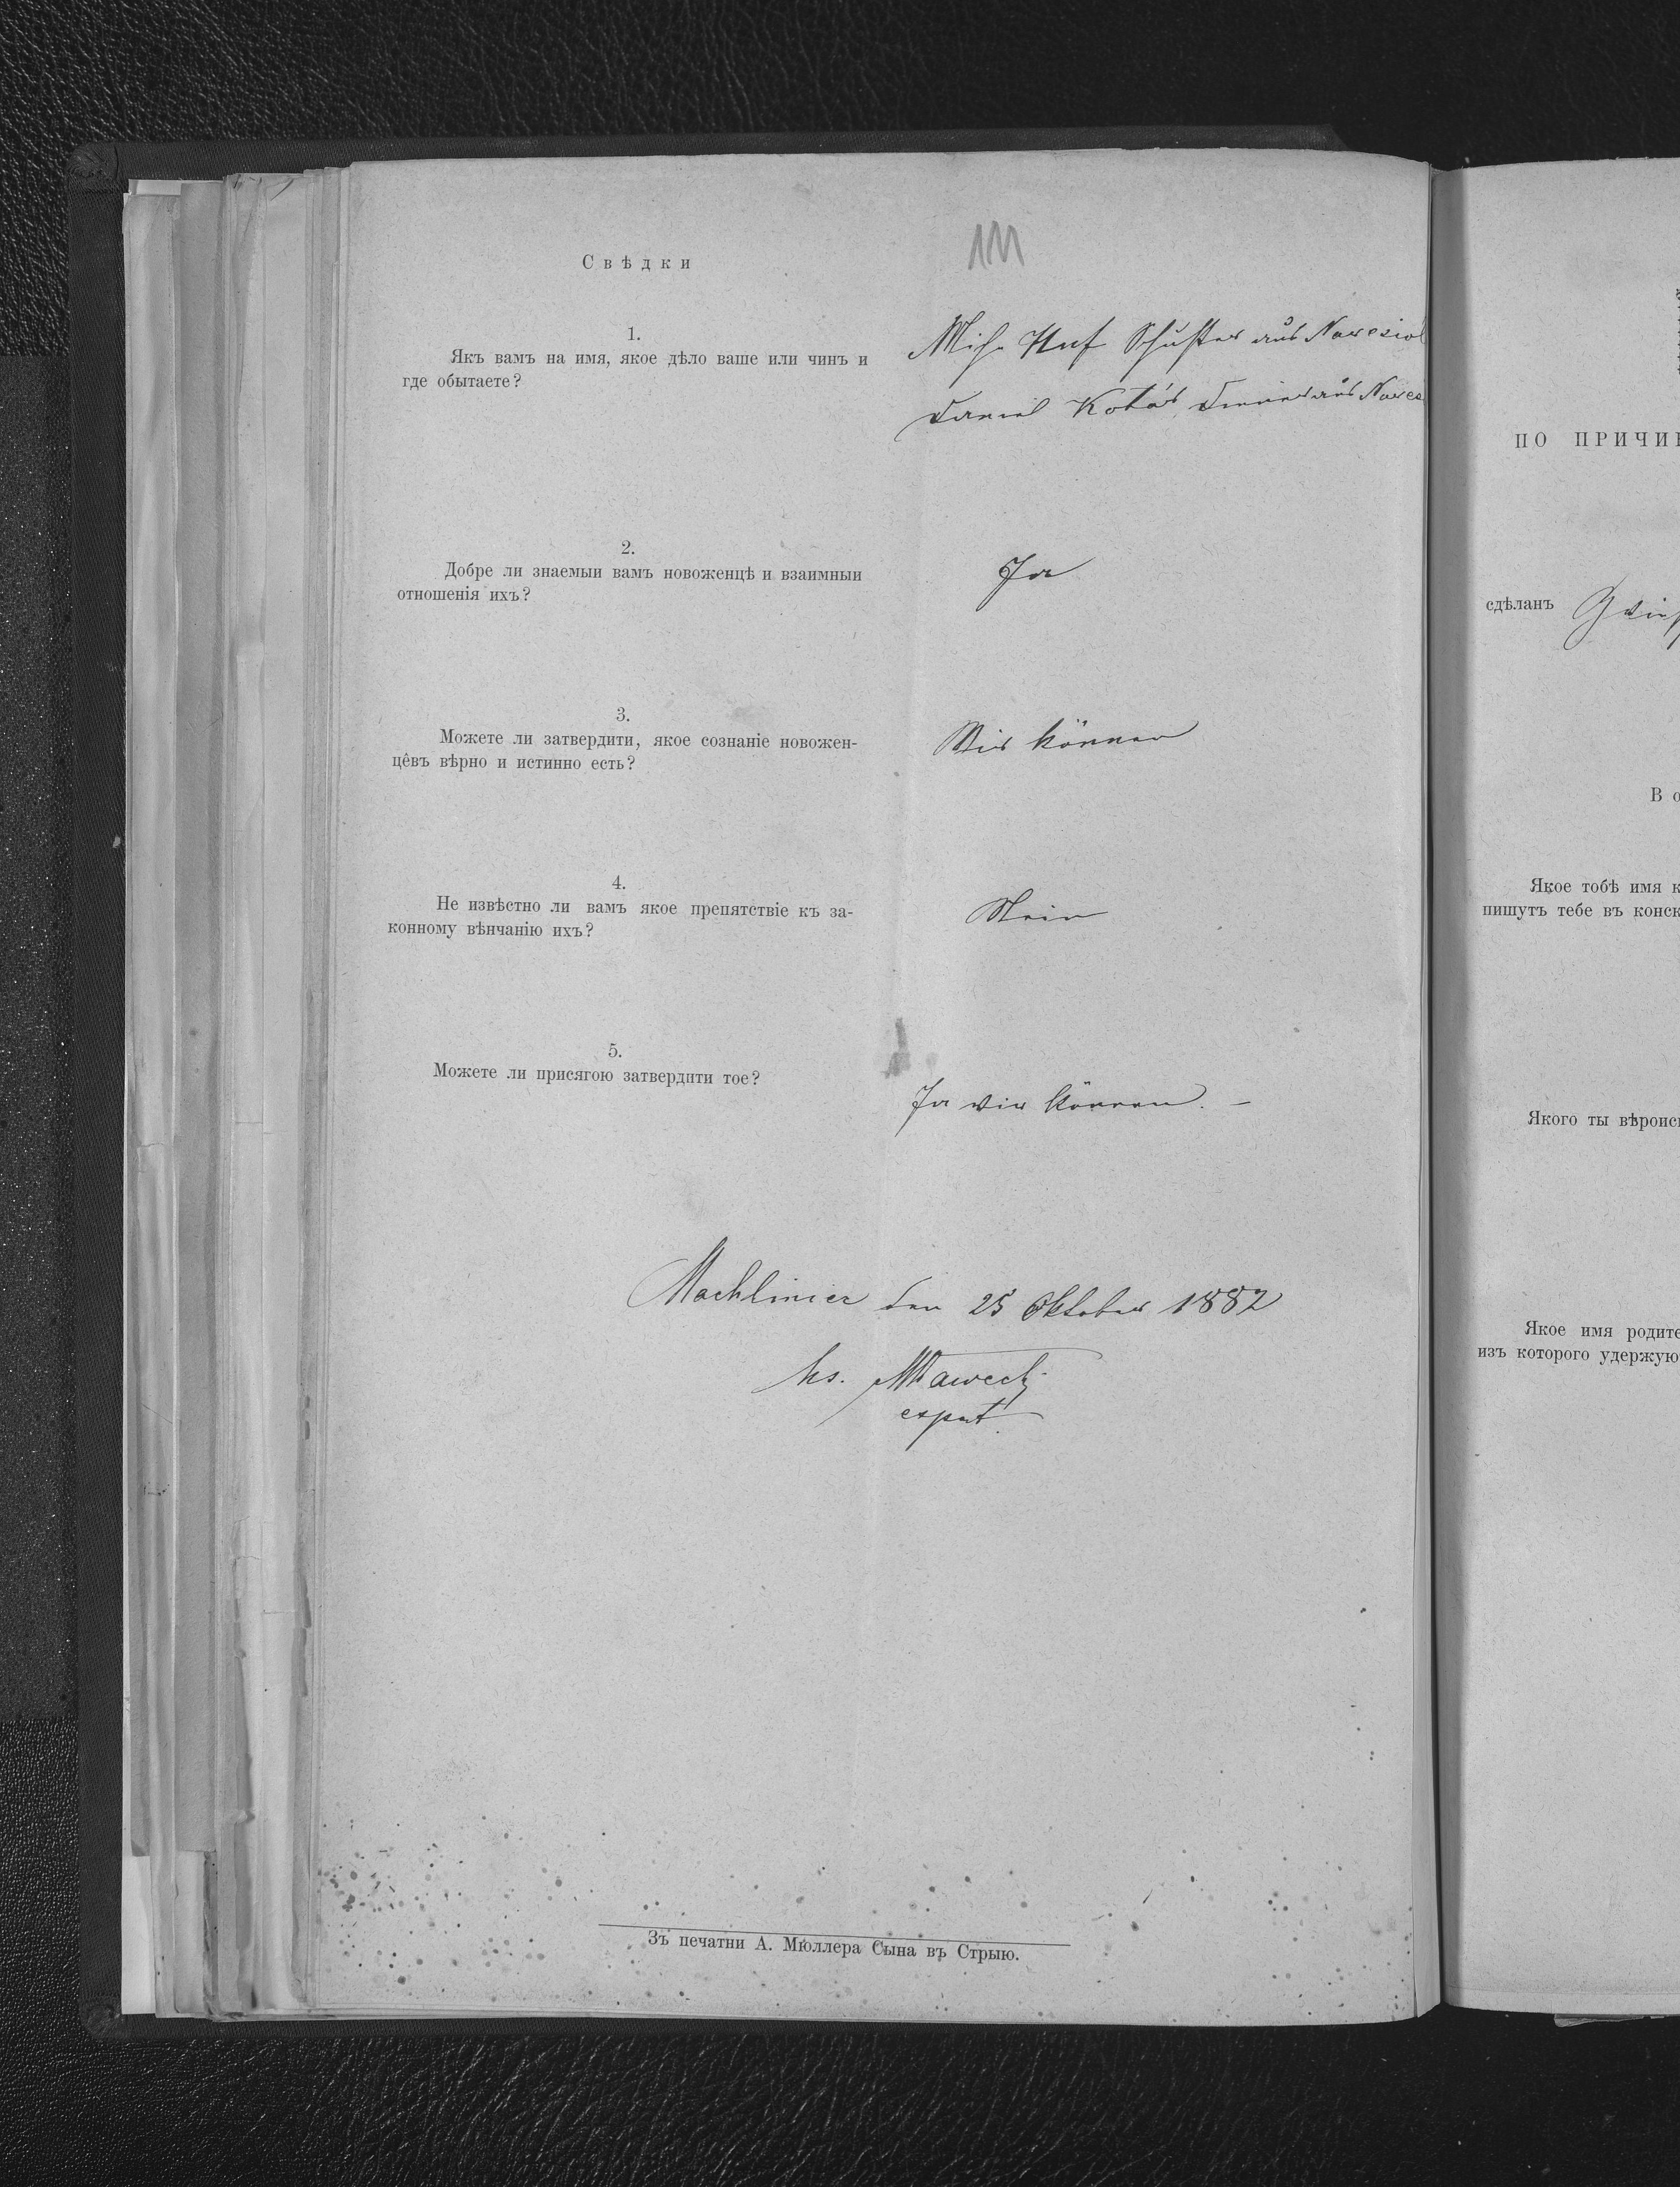 111
Свѣдки
1.
Якъ вамъ на имя, якое дѣло ваше или чинъ и
где обытаете?
Mich. Huf Schuster aus Nowesioł
Daniel Kotás aus Nowes
2.
Добре ли знаемыи вамъ новоженцѣ и взаимныи
отношенія ихъ?
Ja
3.
Можете ли затвердити, якое сознаніе новожен-
цêвъ вѣрно и истинно есть?
Wir können
4.
Не извѣстно ли вамъ якое препятствіе къ за-
конному вѣнчанію ихъ?
Nein
5.
Можете ли присягою затвердити тое?
Ja wir können. –
Machliniec den 25 Oktober 1882
exput
Зъ печатни А. Мюллера Сына въ Стрыю.
ПО ПРИЧИ
сдѣланъ
В о
Якое тобѣ имя к
пишутъ тебе въ конск
Якого ты вѣроис
Якое имя родите
изъ которого удержую